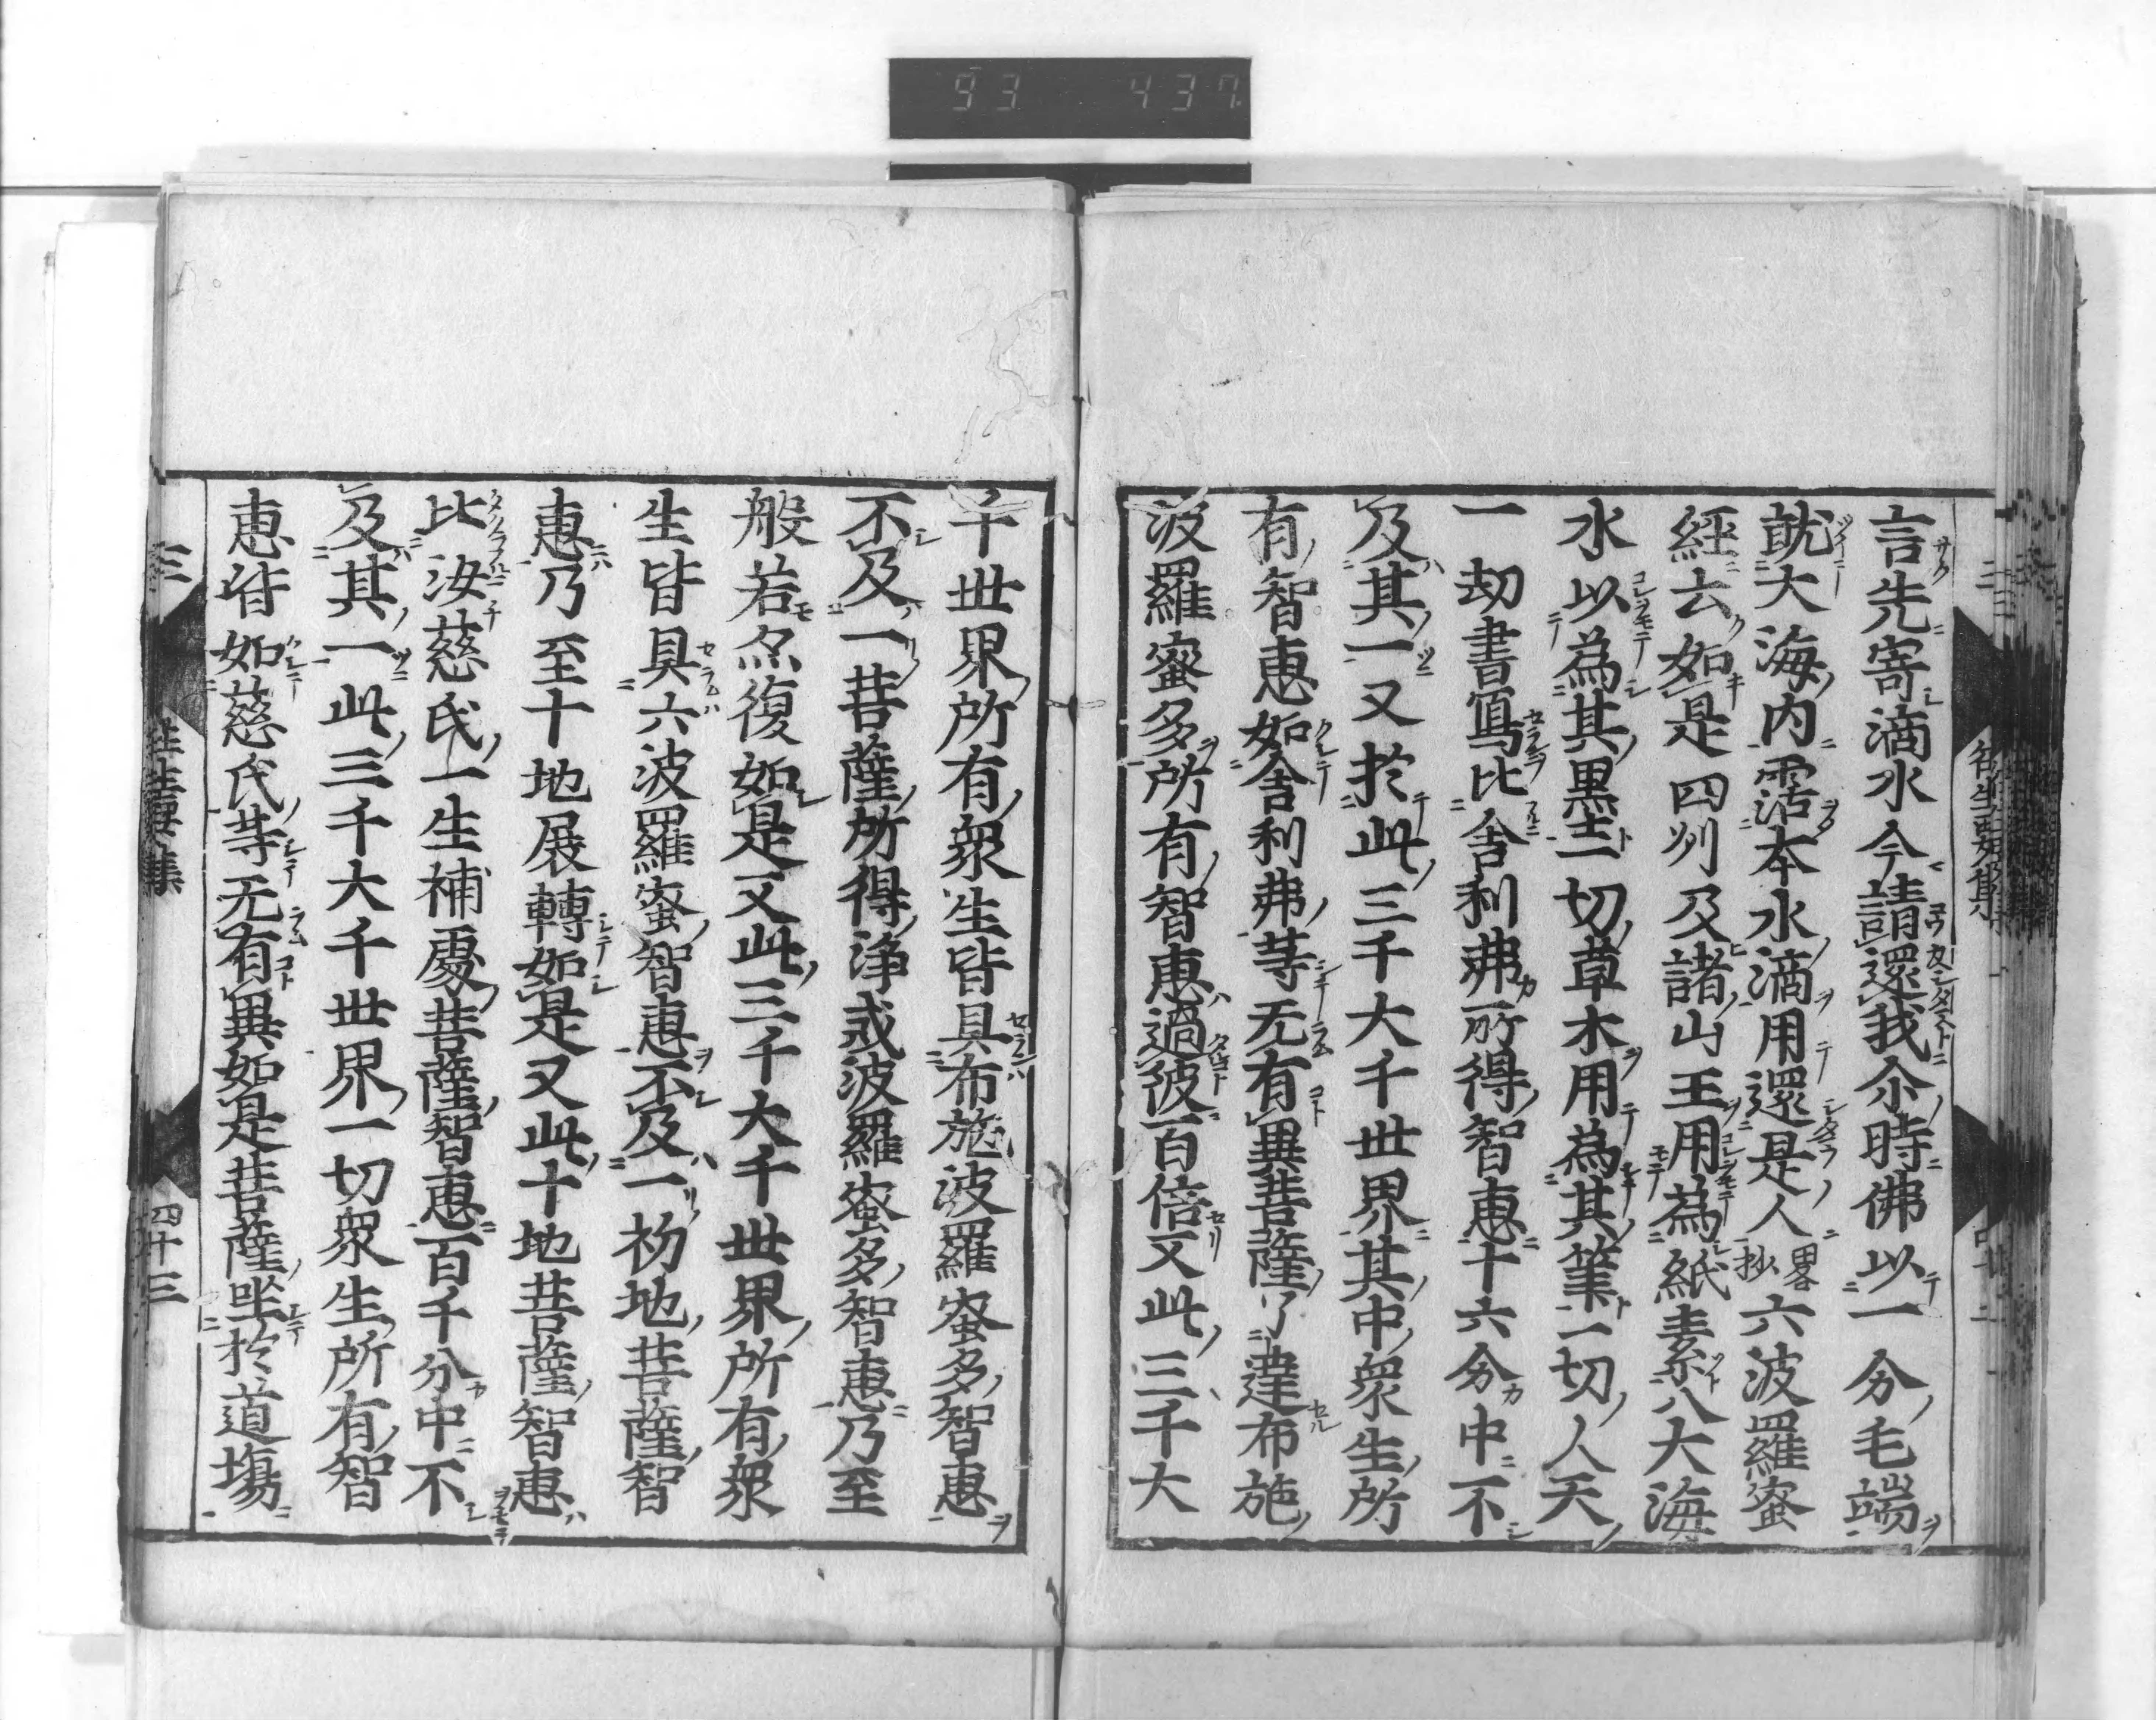 93 437
言先寄滴水今請還我尒時佛以一分毛端
就大海内霑本水滴用還是人畧抄六波羅蜜
經云如是四州及諸山王用為紙素八大海
水以為其墨一切草木用為其筆一切人天
一劫書寫比舎利弗所得智恵十六分中不
及其一又於此三千大千世界其中衆生所
有智恵如舎利弗等无有異菩薩了達布施
波羅蜜多所有智恵過彼百倍又此三千大
千世界所有衆生皆具布施波羅蜜多智恵
不及一菩薩所得浄戒波羅蜜多智恵乃至
般若亦復如是又此三千大千世界所有衆
生皆具六波羅蜜智恵不及一初地菩薩智
恵乃至十地展轉如是又此十地菩薩智恵
比汝慈氏一生補處菩薩智恵百千分中不
及其一此三千大千世界一切衆生所有智
恵皆如慈氏等无有異如是菩薩坐於道場
三 徃生要集 四十三